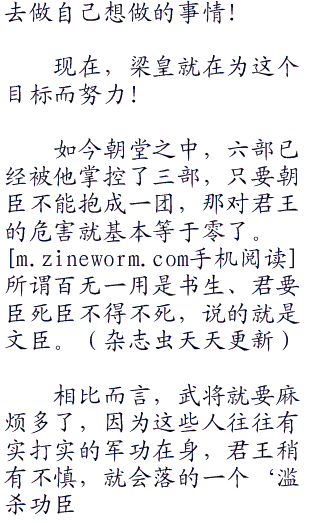 去做自己想做的事情！
现在，梁皇就在为这个
目标而努力！
如今朝堂之中，六部已
经被他掌控了三部，只要朝
臣不能抱成一团，那对君王
的危害就基本等于零了。
[m.zineworm.com手机阅读]
所谓百无一用是书生、君要
臣死臣不得不死，说的就是
文臣。（杂志虫天天更新）
相比而言，武将就要麻
烦多了，因为这些人往往有
实打实的军功在身，君王稍
有不慎，就会落的一个‘滥
杀功臣